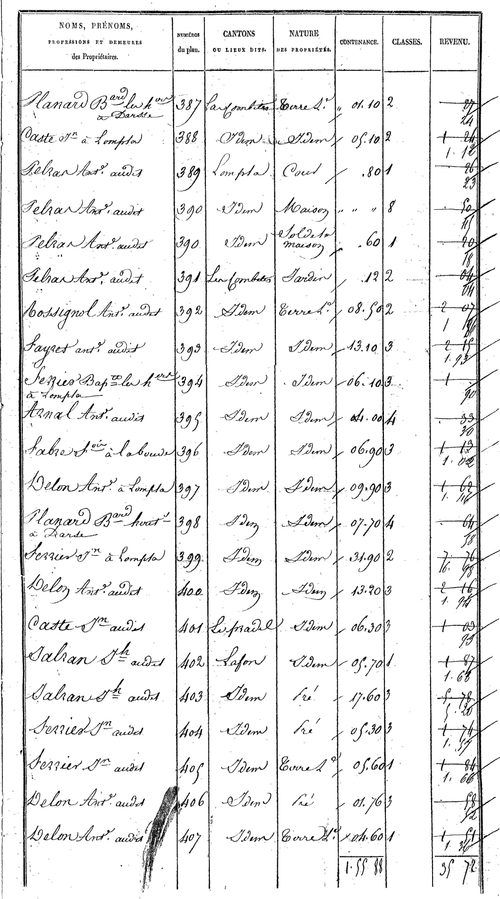 NOMS, PRÉNOMS, PROFESSIONS ET DEMEURES des Propriétaires. NUMÉROS du plan. CANTONS OU LIEUX DITS. NATURE DES PROPRIÉTÉS. CONTENANCE. CLASSES. REVENU.
Planard B.ard les h.ers à Darde 387 Les Combettes Terre L. " 01.10 2 27 24
Caste J.n à Lompla 388 Idem Idem 05.10 2 1 24 1.12
Pelras Ant.e audit 389 Lompla Cour .80 1 26 23
Pelras Ant.e audit 390 Idem Maison " " 8
Pelras Ant.e audit 390 Idem Sol de la maison .60 1 20 18
Pelras Ant.e audit 391 Les Combettes Jardin .12 2 04
Rossignol Ant.e audit 392 Idem Terre L. 08.50 2 2 07
Fayret ant.e audit 393 Idem Idem 13.10 3 2 15 1.93
Serrier Bap.te les h.ers à Lompla 394 Idem Idem 06.10 3 1 90
Arnal Ant.e audit 395 Idem Idem 04.00 4 33 30
Fabre à laboude 396 Idem Idem 06.90 3 1 13 1.02
Delon Ant.e à Lompla 397 Idem Idem 09.90 3 1 62
Planard B.ard à Darde 398 Idem Idem 07.70 4 64 58
Serrier J.n à Lompla 399 Idem Idem 31.90 2 7 76 6.98
Delon Ant.e audit 400 Idem Idem 13.20 3 2 16 1.94
Caste J.n audit 401 Le pradel Idem 06.30 3 1 03 93
Salran J.h audit 402 Lafon Idem 05.70 1 1 87 1.68
Salran J.h audit 403 Idem Pré 17.60 3 5 78 5.20
Serrier J.n audit 404 Idem Pré 05.30 3 1 74 1.57
Serrier J.n audit 405 Idem Terre L. 05.60 1 1 84 1.66
Delon Ant.e audit 406 Idem Pré 01.76 3 58 52
Delon Ant.e audit 407 Idem Terre L. 04.60 1 1 51 1.36
1.55 88 35 72